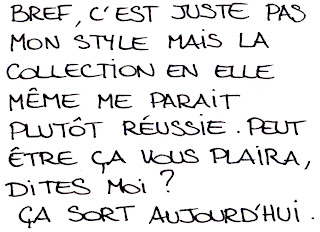 BREF, C'EST JUSTE PAS
MON STYLE MAIS LA
COLLECTION EN ELLE
MÊME ME PARAIT
PLUTÔT RÉUSSIE. PEUT
ÊTRE ÇA VOUS PLAIRA,
DITES MOI ?
ÇA SORT AUJOURD'HUI.